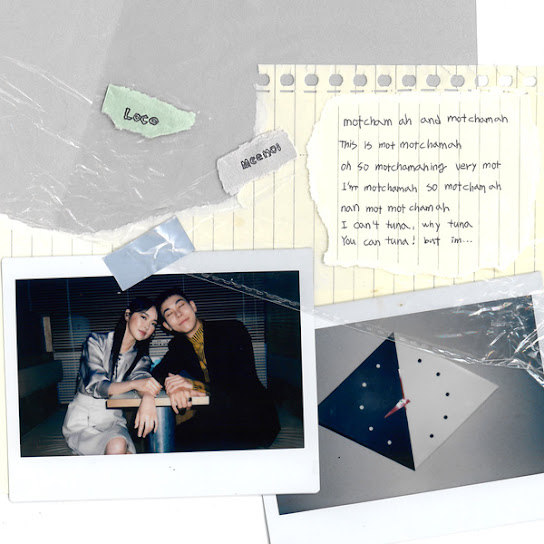 Loco
MeeNOi
motcham ah and motchamah
This is mot motchamah
oh so motchamahing very mot
I'm motchamah so motcham ah
nan mot mot chamah
I can't tuna, why tuna
You can tuna! but im...